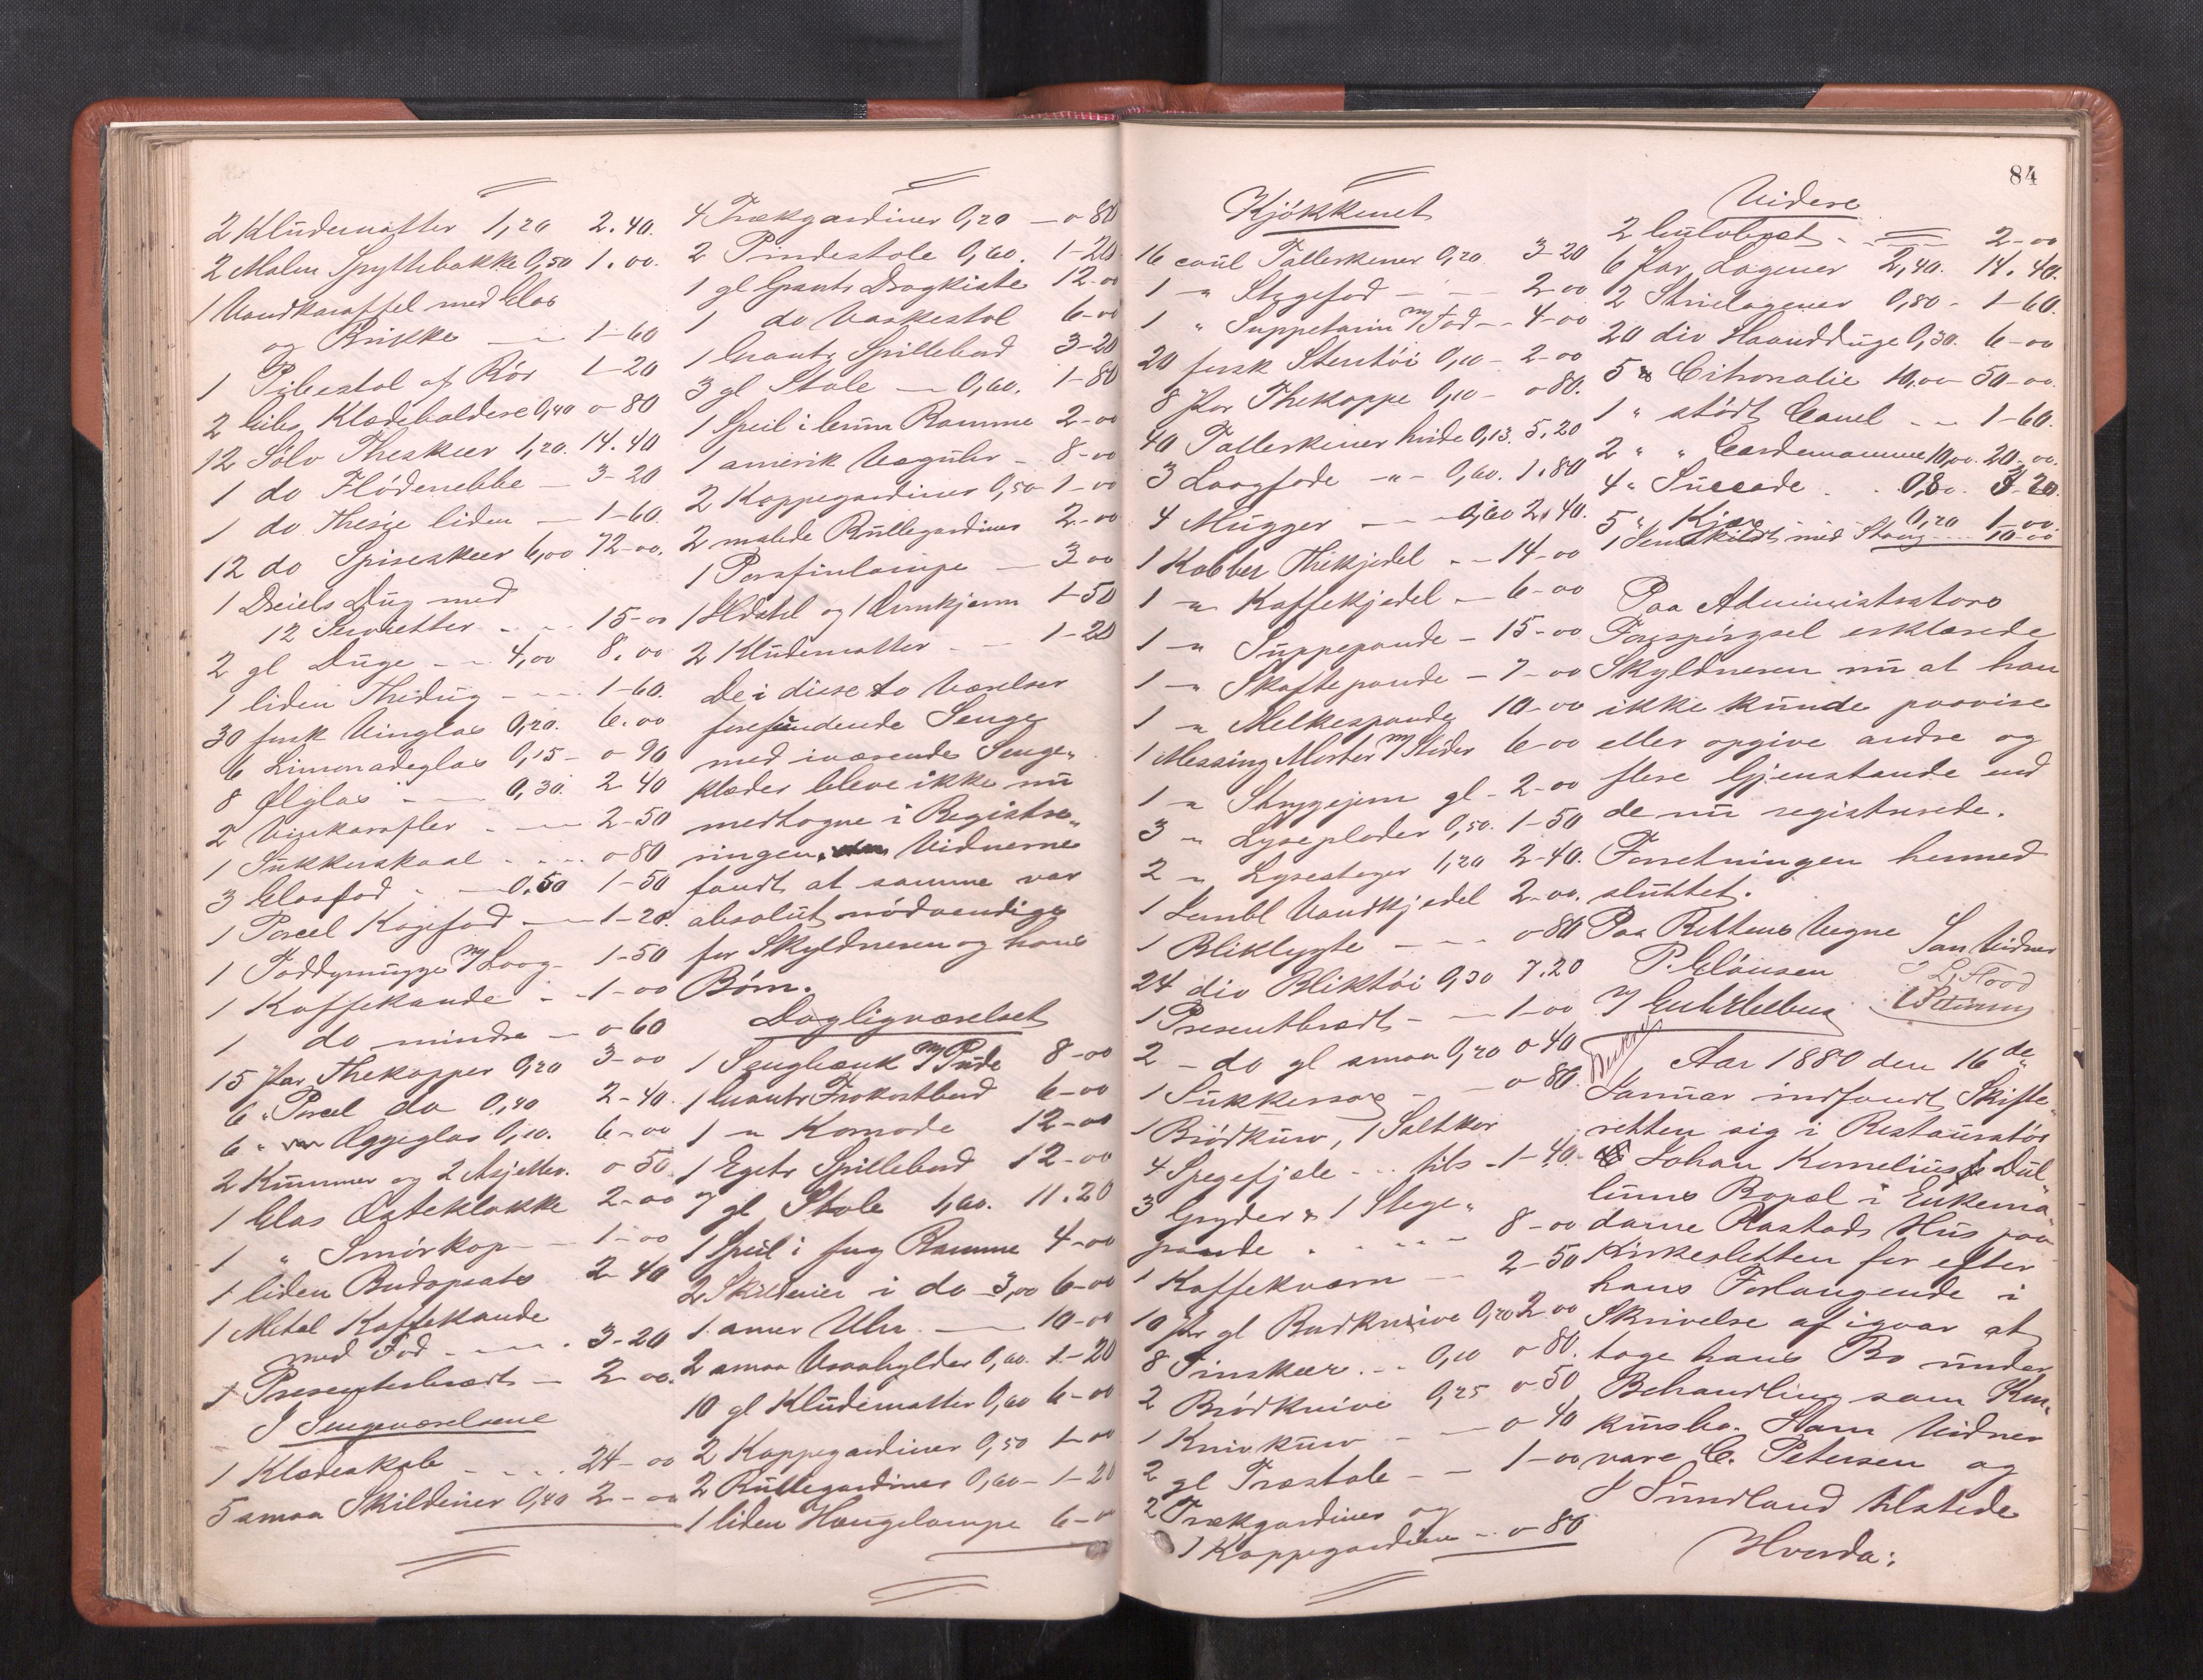 2 Kludematter 1,20 2.40.
2 Malm Spyttebakke 0,50 1.00.
1 Vandkaraffel med Glas
og Brikke — 1-60
1 Pibestol af Rör 1-20
2 Gibs Klædeholdere 0,40 0-80
12 Sölv Theskeer 1,20. 14.40
1 do Flödenebbe — 3-20
1 do Thesie liden — 1-60.
12 do Spiseskeer 6,00 72-00.
1 Dreiels Dug med
12 Servietter - - 15-00
2 gl Duge - - 4,00 8.00
1 liden Thedug - - - 1-60.
30 fersk Vinglas 0,20. 6.00
6 Limonadeglas 0,15 - 0-90
8 Ølglas - — 0,30. 2 40
2 Vinkarafler - — 2-50
1 Sukkerskaal - - - 0-80
3 Glasfad - — 0.50 1-50
1 Porcel Kagefad — 1-20.
1 Toddymugge m/ Laag - 1-50
1 Kaffekande - - 1-00
1 do mindre — 0-60
15 Par Thekopper 0,20 3-00
6 " Porcel do 0,40 2-40.
6 " Æggeglas 0,10. 6-00
2 Kummer og 2 Asjetter. 0-50.
1 Glas Osteklokke 2-00
1 " Smörkop - - 1-00
1 liden Budopsats 2-40
1 Metal Kaffekande
med Fod - - - . 3-20
1 Presenterbrædt - 2-00.
I Sengeværelserne
1 Klædeskab - - - 24-00
5 smaa Skilderier 0,40 2-00
4 Trækgardiner 0,20 — 0-80
2 Pindestole 0,60. 1-20
1 gl Granetr Dragkiste 12-00
1 do Vaskestol 6-00
1 Granetr Spillebord 3-20
3 gl Stole — 0,60. 1-80
1 Speil i brun Ramme 2-00
1 amerik Væguhr - 8-00
2 Kappegardiner 0,50 1-00
2 malede Rullegardiner 2-00
1 Parafinlampe — 3-00
1 Ildstel og 1 Ovnkjern 1-50
2 Kludematter - - 1-20
De i disse to Værelser
forefundende Senge
med iværende Senge-
klæder bleve ikke nu
medtagne i Registre-
ringen, Vidnerne
fandt at samme var
absolut nödvendige
for Skyldneren og hans
Börn.
Dagligværelset
1 Sengbænk m/ Pude 8-00
1 Granetr Frokostbord 6-00
1 " Komode 12-00
1 Egetr Spillebord 12-00
7 gl Stole 1,60. 11.20
1 Speil i Ramme 4-00
2 Skilderier i do 3,00 6-00
1 amer Uhr. — 10-00
2 smaa Vraahylder 0,60. 1-20
10 gl Kludematter 0,60 6-00
2 Kappegardiner 0,50 1-00
2 Rullegardiner 0,60 - 1-20
1 liden Hængelampe 6-00
84
Kjökkenet
16 coul Tallerkener 0,20 3-20
1 " Stegefad - — 2-00
1 " Suppeterin m/ Fad - - 4-00
20 fersk Stentöi 0,10 - 2-00
8 Par Thekoppe 0,10 - 0 80.
40 Tallerkener hvide 0,13. 5.20
3 Laagfade - " - 0,60. 1.80
4 Mugger - — 0,60 2.40.
1 Kobber Thekjedel - - 14-00
1 " Kaffekjedel - 6-00
1 " Suppepande - 15-00
1 " Skaftepande - 7-00
1 " Melkespande 10-00
1 Messing Morter m/ Stöder 6-00
1 " Strygejern gl - 2-00
3 " Lyseplader 0,50. 1-50
2 " Lysestager 1,20 2-40.
1 Jernbl Vandkjedel 2-00.
1 Bliklygte — - - 0-80
24 div Bliktöi 0,30 7.20
1 Presentbrædt - — 1-00
2 - do gl smaa 0,20 0 40
1 Sukkersax - 0-80.
1 Brödkurv, 1 Saltkar
4 Spegefjele - - - tils - 1-40.
3 Gryder & 1 Stege-
pande . . . - - 8-00
1 Kaffekværn — 2-50
10 Par gl Bordknive 0,20 2-00
8 Tinskeer. - - 0,10 0-80.
2 Brödknive 0,25 0-50
1 Knivkurv - — 0-40
2 gl Træstole - - 1-00
2 Trækgardiner og
1 Kappegardin - - 0-80
Videre
2 - - 2-00
6 Par Lagener 2,40. 14.40.
2 Strielagener 0,80 - 1-60.
20 div Haandduge 0,30. 6-00
5 Citronolie 10,00 - 50-00.
1 " stödt Canel - - 1-60.
2 " " Cardemomme 10,00. 20-00.
4 " Succade . . 0,80. 3-20.
5 " 0,20 1-00.
1 med Stang - - 10-00
Paa Administrators
Forespörgsel erklærede
Skyldneren nu at han
ikke kunde paavise
eller opgive andre og
flere Gjenstande end
de nu registrerede.
Forretningen hermed
sluttet.
Paa Rettens Vegne
Som Vidner
P. Clausen
J L Flood
Aar 1880 den 16de
Januar indfandt Skifte-
retten sig i Restauratör
Johan Kornelius Dul-
lums Bopæl i Enkema-
dame Rastads Hus paa
Kirkesletten for efter
hans Forlangende i
Skrivelse af igaar at
tage hans Bo under
Behandling som Kon-
kursbo. Som Vidner
vare C. Petersen og
J Sundland tilstede
Hvorda: